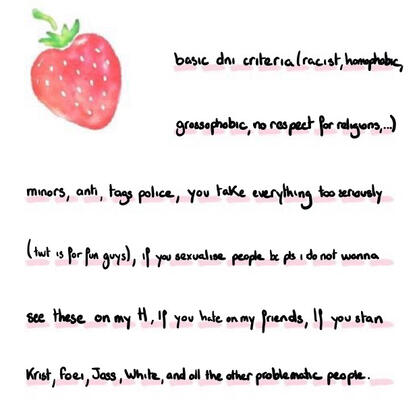 basic dni criteria (racist, homophobic,
grossophobic, no respect for religions,...)
minors, anti, tags police, you take everything too seriously
(twt is for fun guys), if you sexualise people bc pls i do not wanna
see these on my tl, If you hate on my friends, If you stan
Krist, foei, Joss, White, and all the other problematic people.